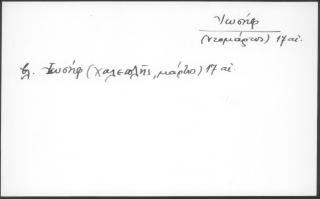 Ἰωσήφ
(Ντομάρτος) 17 αἰ.
βλ. Ἰωσήφ (Χαλεπλῆς, μάρτυς) 17 αἰ.